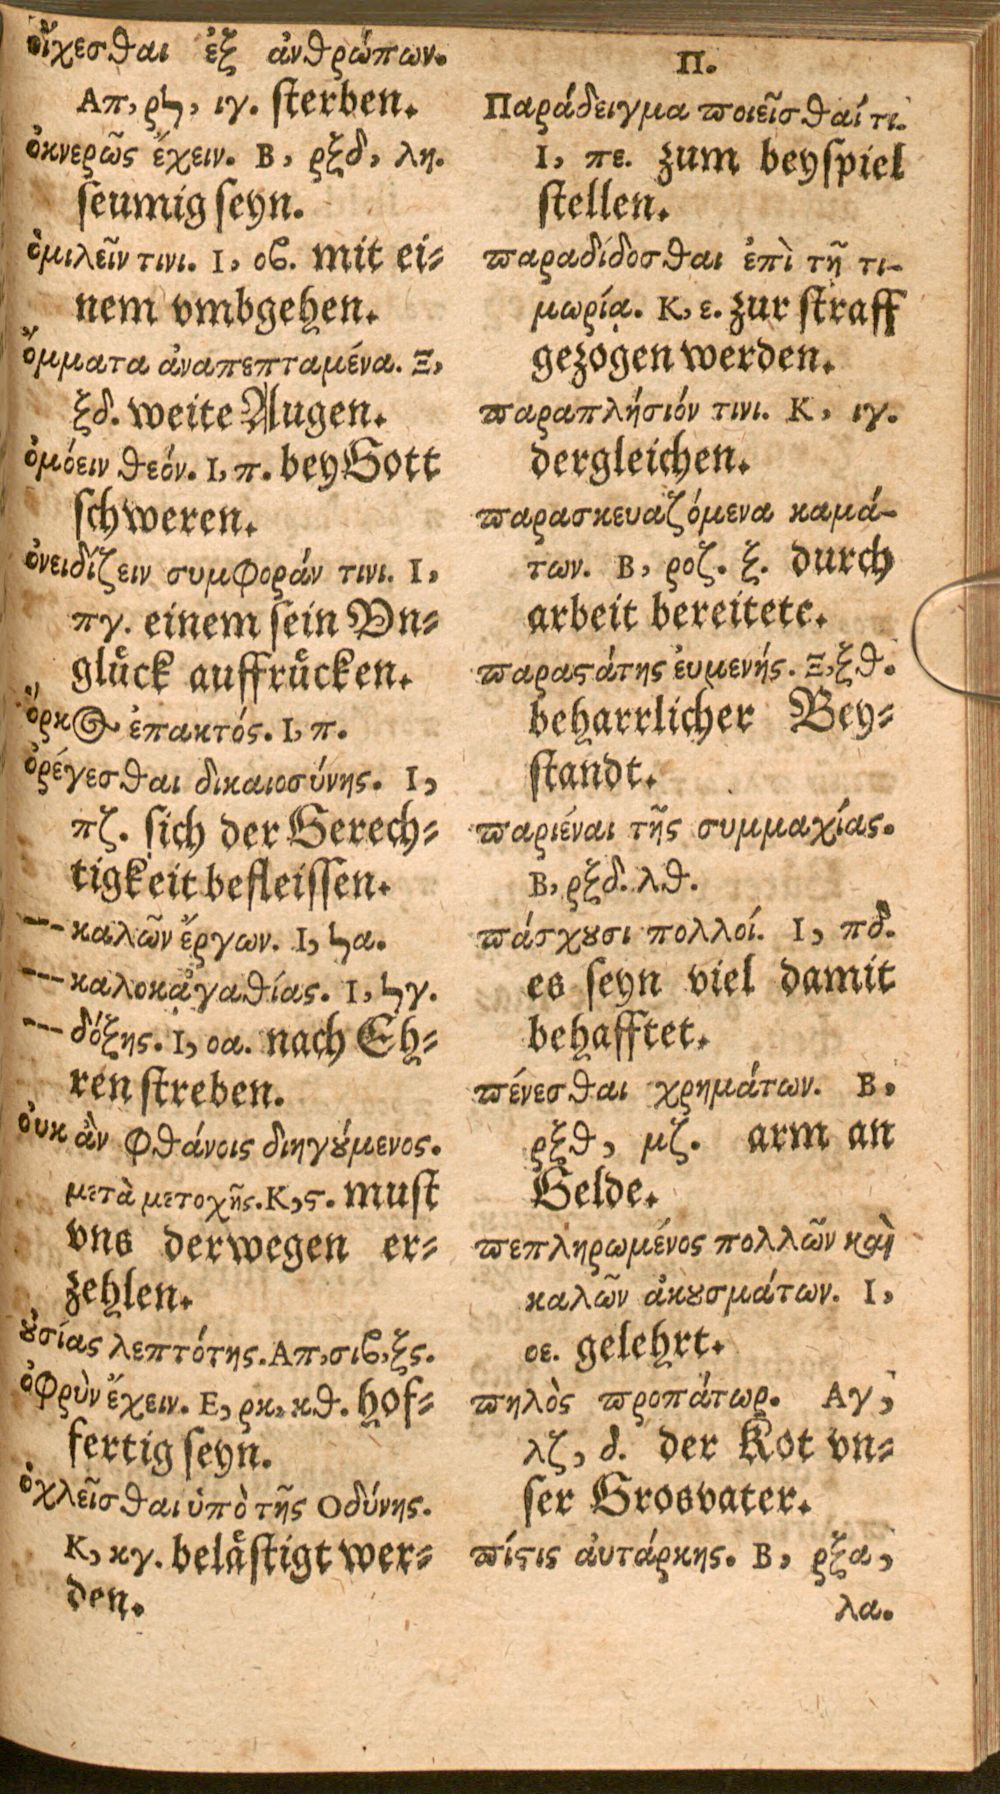 οἴχεσθαι ἐξ ἀνθρώπων.
Απ, ρϟ, ιγ. sterben.
ὀκνερῶς ἔχειν. Β, ρξδ, λη.
seumig seyn.
ὁμιλεῖν τινι. Ι, οϐ. mit ei⸗
nem vmbgehen.
ὄμματα ἀναπεπταμένα. Ξ,
ξδ. weite Augen.
ὀμόειν θεόν. Ι, π. bey Gott
schweren.
ὀνειδίζειν συμφοράν τινι. Ι,
πγ. einem sein Vn⸗
gluͤck auffruͤcken.
ὅρκος ἐπακτός. Ι, π.
ὀρέγεσθαι δικαιοσύνης. Ι,
πζ. sich der Gerech⸗
tigkeit befleissen.
--- καλῶν ἔργων. Ι, ϟα.
--- καλοκἀγαθίας. Ι, ϟγ.
--- δόξης. Ι, οα. nach Eh⸗
ren streben.
ὀυκ ἂν φθάνοις διηγȣ́μενος.
μετὰ μετοχῆς. Κ, ϛ. must
vns derwegen er⸗
zehlen.
ȣ̓σίας λεπτότης. Απ, σιϐ, ξϛ.
ὀφρὺν ἔχειν. Ε, ρκ, κθ. hof⸗
fertig seyn.
ὀχλεῖσθαι ὑπὸ τῆς Οδύνης.
Κ, κγ. belaͤstigt wer⸗
den.
Π.
Παράδειγμα ϖοιεῖσθαί τι.
Ι, πε. zum beyspiel
stellen.
ϖαραδίδοσθαι ἐπὶ τῇ τι-
μωρίᾳ. Κ, ε. zur straff
gezogen werden.
ϖαραπλήσιόν τινι. Κ, ιγ.
dergleichen.
ϖαρασκευαζόμενα καμά-
των. Β, ροζ. ξ. durch
arbeit bereitete.
ϖαραϛάτης ἐυμενής. Ξ, ξθ.
beharrlicher Bey⸗
standt.
ϖαριέναι τῆς συμμαχίας.
Β, ρξδ. λθ.
ϖάσχȣσι πολλοί. Ι, πδ.
es seyn viel damit
behafftet.
ϖένεσθαι χρημάτων. Β,
ρξθ, μζ. arm an
Gelde.
ϖεπληρωμένος πολλῶν καὶ
καλῶν ἀκȣσμάτων. Ι,
οε. gelehrt.
ϖηλὸς ϖροπάτωρ. Αγ,
λζ, δ. der Kot vn⸗
ser Grosvater.
ϖίϛις ἀυτάρκης. Β, ρξα,
λα.